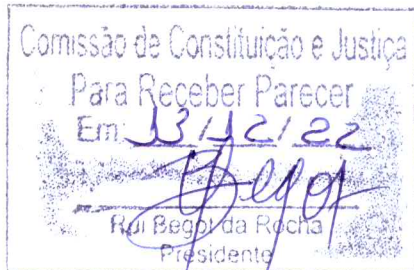 Comissão de Constituição e Justiça
Para Receber Parecer
Em 13/12/22
Begot
Rui Begot da Rocha
Presidente